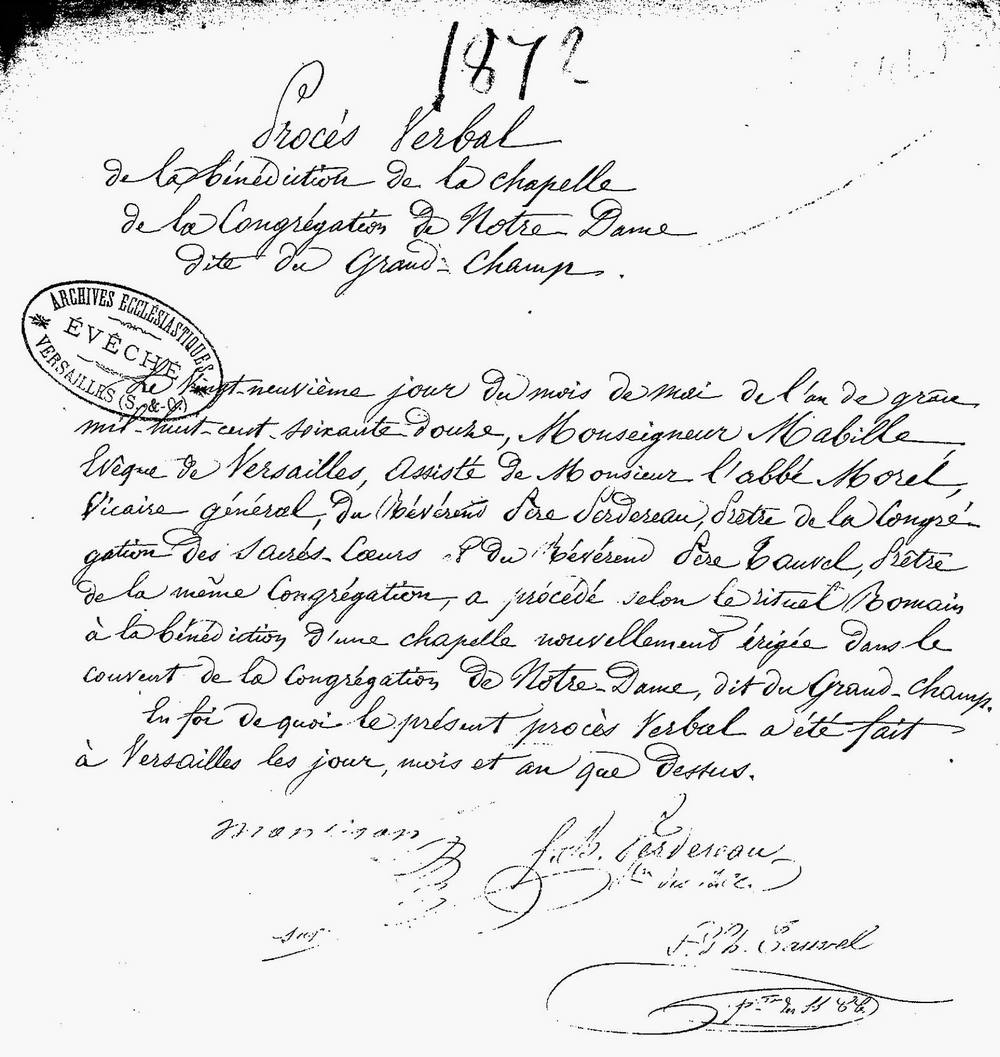 1872
Procés Verbal
de la bénédiction de la chapelle
de la Congrégation de Notre-Dame
dite du Grand-Champ.
ARCHIVES ECCLÉSIASTIQUES
ÉVÊCHÉ
VERSAILLES (S.-&-O.)
Le Vingt-neuvième jour du mois de mai de l'an de grâce
mil-huit-cent-soixante-douze, Monseigneur Mabille,
Evêque de Versailles, assisté de Monsieur l'abbé Morel,
Vicaire général, du Révérend Père Perdereau, Prêtre de la Congré-
gation des Sacrés-Cœurs & du Révérend Père Tauvel, Prêtre
de la même Congrégation, a procédé selon le rituel Romain
à la bénédiction d'une chapelle nouvellement érigée dans le
couvent de la Congrégation de Notre-Dame, dit du Grand-Champ.
En foi de quoi le présent procès Verbal a été fait
à Versailles les jour, mois et an que dessus.
Perdereau
P. Ph. Tauvel